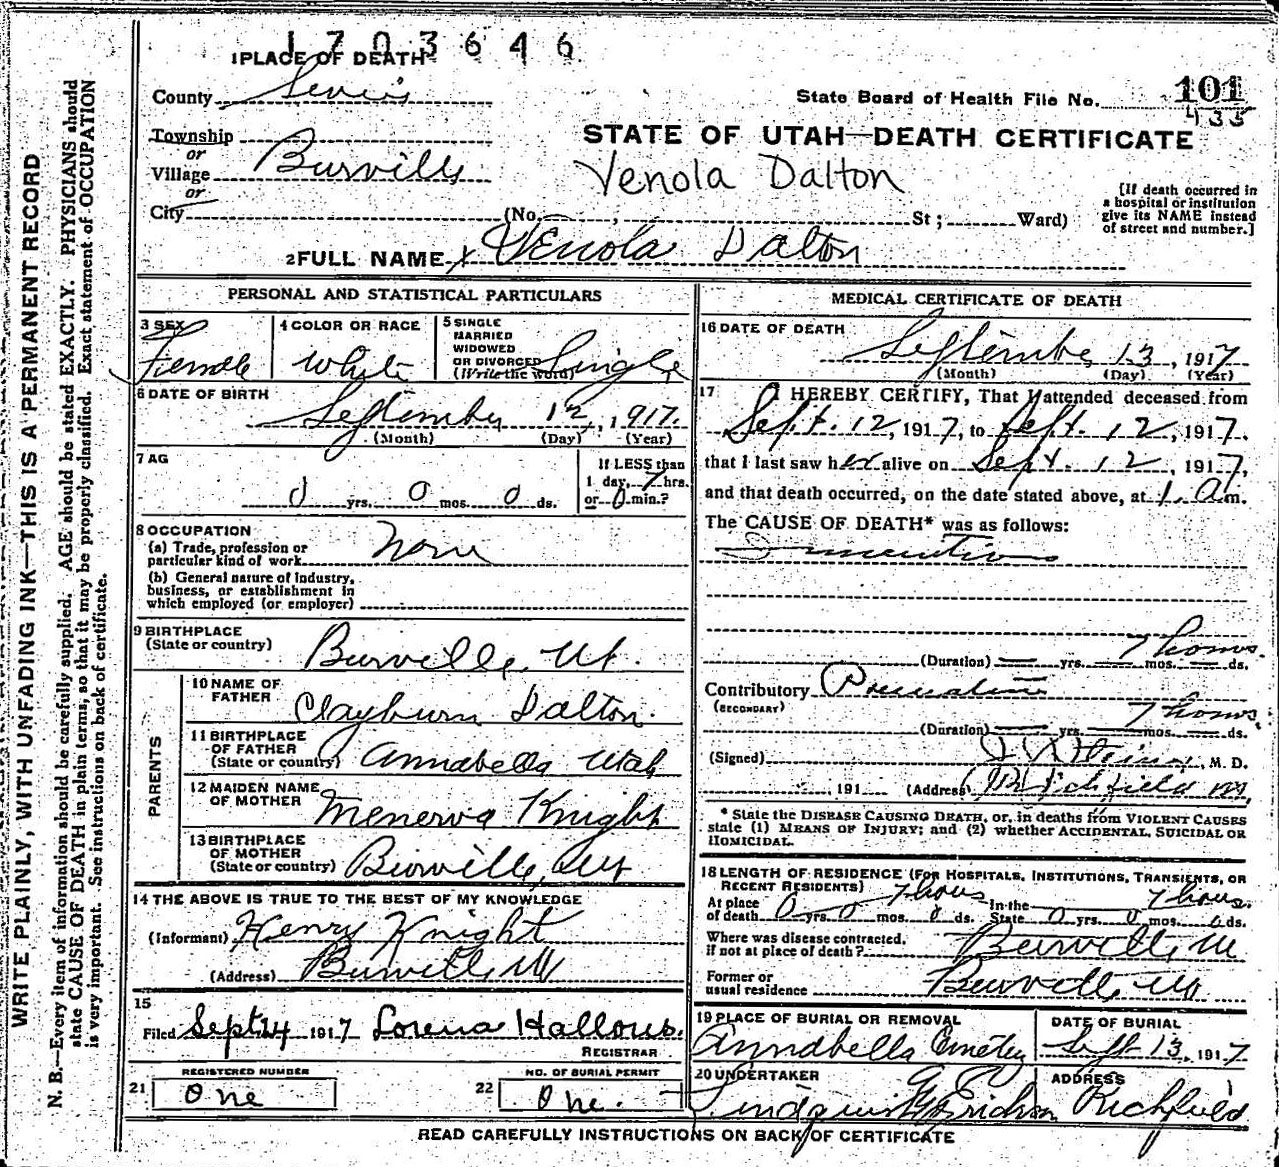 1703646
1 PLACE OF DEATH
County Sevier
State Board of Health File No. 101
435
Township
or
Village Burville
or
STATE OF UTAH—DEATH CERTIFICATE
Venola Dalton
City (No. , St ; Ward)
[If death occurred in
a hospital or institution
give its NAME instead
of street and number.]
2 FULL NAME x Venola Dalton
PERSONAL AND STATISTICAL PARTICULARS
3 SEX
Female
4 COLOR OR RACE
White
5 SINGLE
MARRIED
WIDOWED
OR DIVORCED
(Write the word)
Single
6 DATE OF BIRTH
September 12, 1917.
(Month) (Day) (Year)
7 AG
0 yrs. 0 mos. 0 ds.
If LESS than
1 day, 7 hrs.
or 0 min.?
8 OCCUPATION
(a) Trade, profession or
particular kind of work None
(b) General nature of industry,
business, or establishment in
which employed (or employer)
9 BIRTHPLACE
(State or country)
Burville, Ut.
PARENTS
10 NAME OF
FATHER
Clayburn Dalton.
11 BIRTHPLACE
OF FATHER
(State or country) Annabella Utah
12 MAIDEN NAME
OF MOTHER
Menerva Knight
13 BIRTHPLACE
OF MOTHER
(State or country) Burville, Ut
14 THE ABOVE IS TRUE TO THE BEST OF MY KNOWLEDGE
(Informant) Henry Knight
(Address) Burville Ut
15
Filed Sept 14 1917 Lorena Hallows.
REGISTRAR
REGISTERED NUMBER
21 One
NO. OF BURIAL PERMIT
22 One.
MEDICAL CERTIFICATE OF DEATH
16 DATE OF DEATH
September 13, 1917
(Month) (Day) (Year)
17 I HEREBY CERTIFY, That I attended deceased from
Sept. 12, 1917, to Sept. 12, 1917.
that I last saw her alive on Sept. 12, 1917,
and that death occurred, on the date stated above, at 1 a m.
The CAUSE OF DEATH* was as follows:
7 hours.
(Duration) yrs. mos. ds.
Contributory
(SECONDARY)
7 hours.
(Duration) yrs. mos. ds.
(Signed) , M. D.
191 (Address) Richfield
* State the DISEASE CAUSING DEATH, or, in deaths from VIOLENT CAUSES
state (1) MEANS OF INJURY; and (2) whether ACCIDENTAL, SUICIDAL OR
HOMICIDAL.
18 LENGTH OF RESIDENCE (FOR HOSPITALS, INSTITUTIONS, TRANSIENTS, OR
RECENT RESIDENTS) 7 hours 7 hours.
At place
of death 0 yrs 0 mos. 0 ds. In the
State 0 yrs. 0 mos. 0 ds.
Where was disease contracted,
if not at place of death? Burville, Ut
Former or
usual residence Burville, Ut
19 PLACE OF BURIAL OR REMOVAL
Annabella Cmetey
DATE OF BURIAL
Sept 13, 1917
20 UNDERTAKER
Lindquist Erickson
ADDRESS
Richfield
READ CAREFULLY INSTRUCTIONS ON BACK OF CERTIFICATE
WRITE PLAINLY, WITH UNFADING INK—THIS IS A PERMANENT RECORD
N. B.—Every item of information should be carefully supplied. AGE should be stated EXACTLY. PHYSICIANS should
state CAUSE OF DEATH in plain terms, so that it may be properly classified. Exact statement of OCCUPATION
is very important. See instructions on back of certificate.